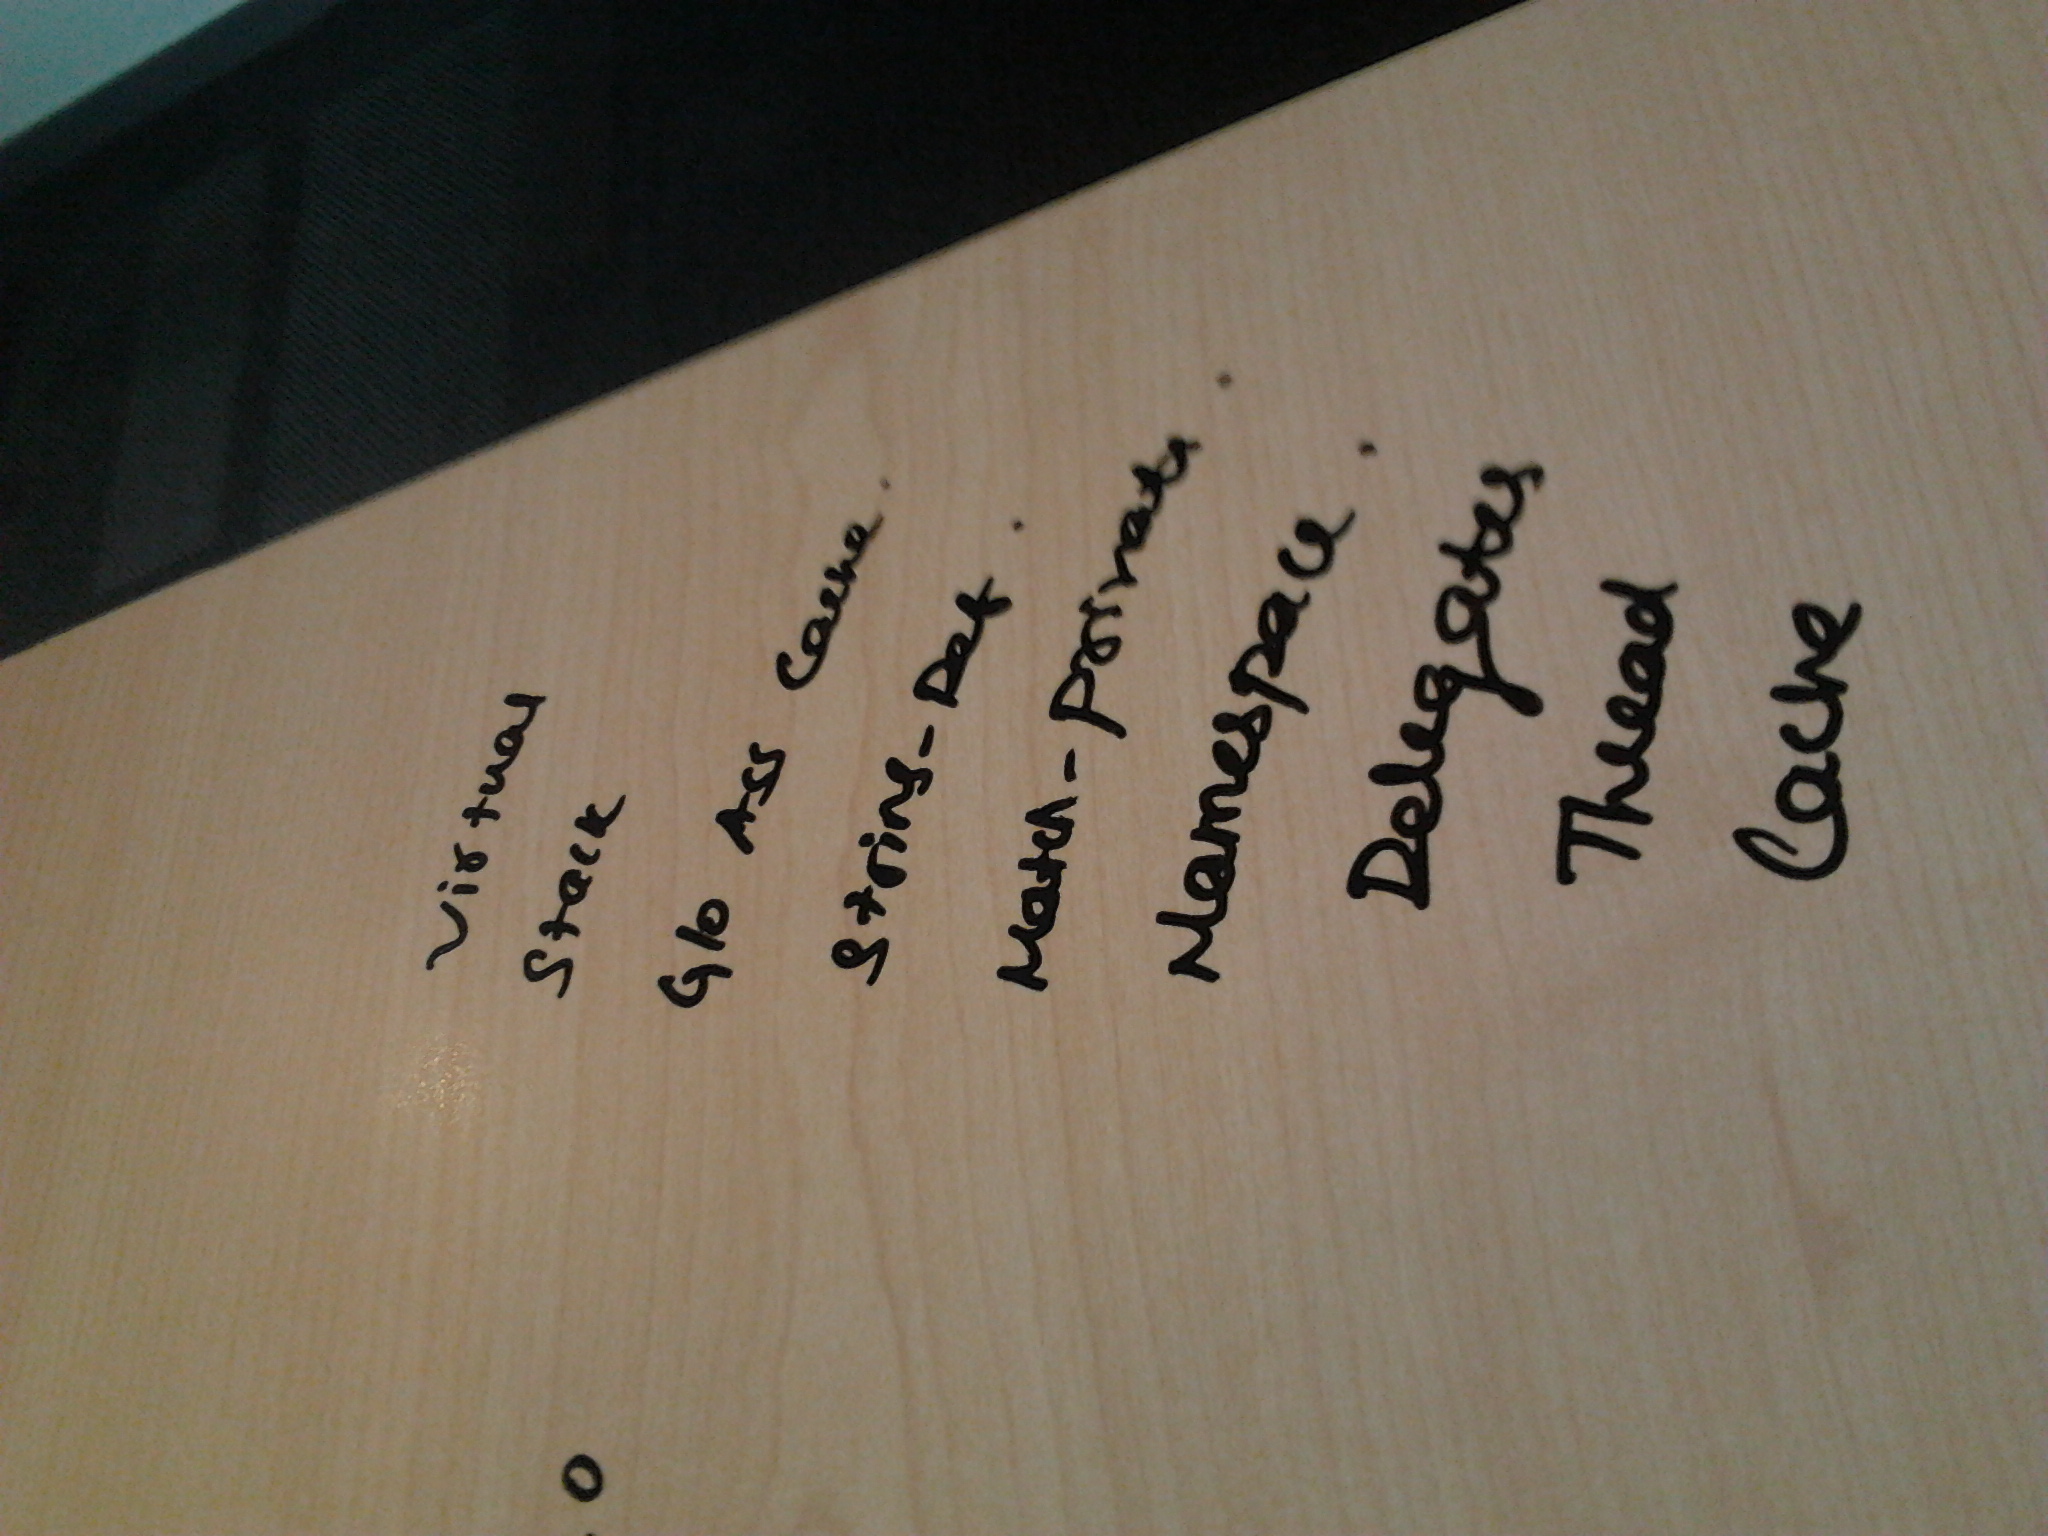 Virtual
. 0
Stack
Glo Ass Cache.
String-Def.
Match-private.
Namespace.
Delegates
Thread
Cache